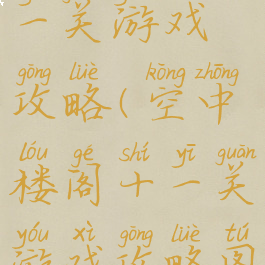 一关游戏
gōng lüè kōng zhōng
攻略(空中
lóu gé shí yī guān
楼阁十一关
yóu xì gōng lüè tú
游戏攻略图